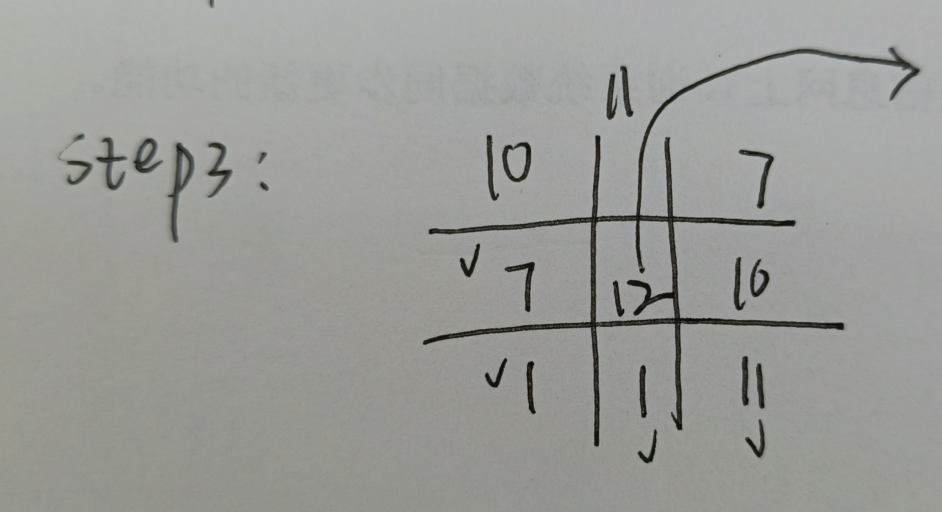 step3:
10 11 7
✓7 12 10
✓1 1✓ 11✓